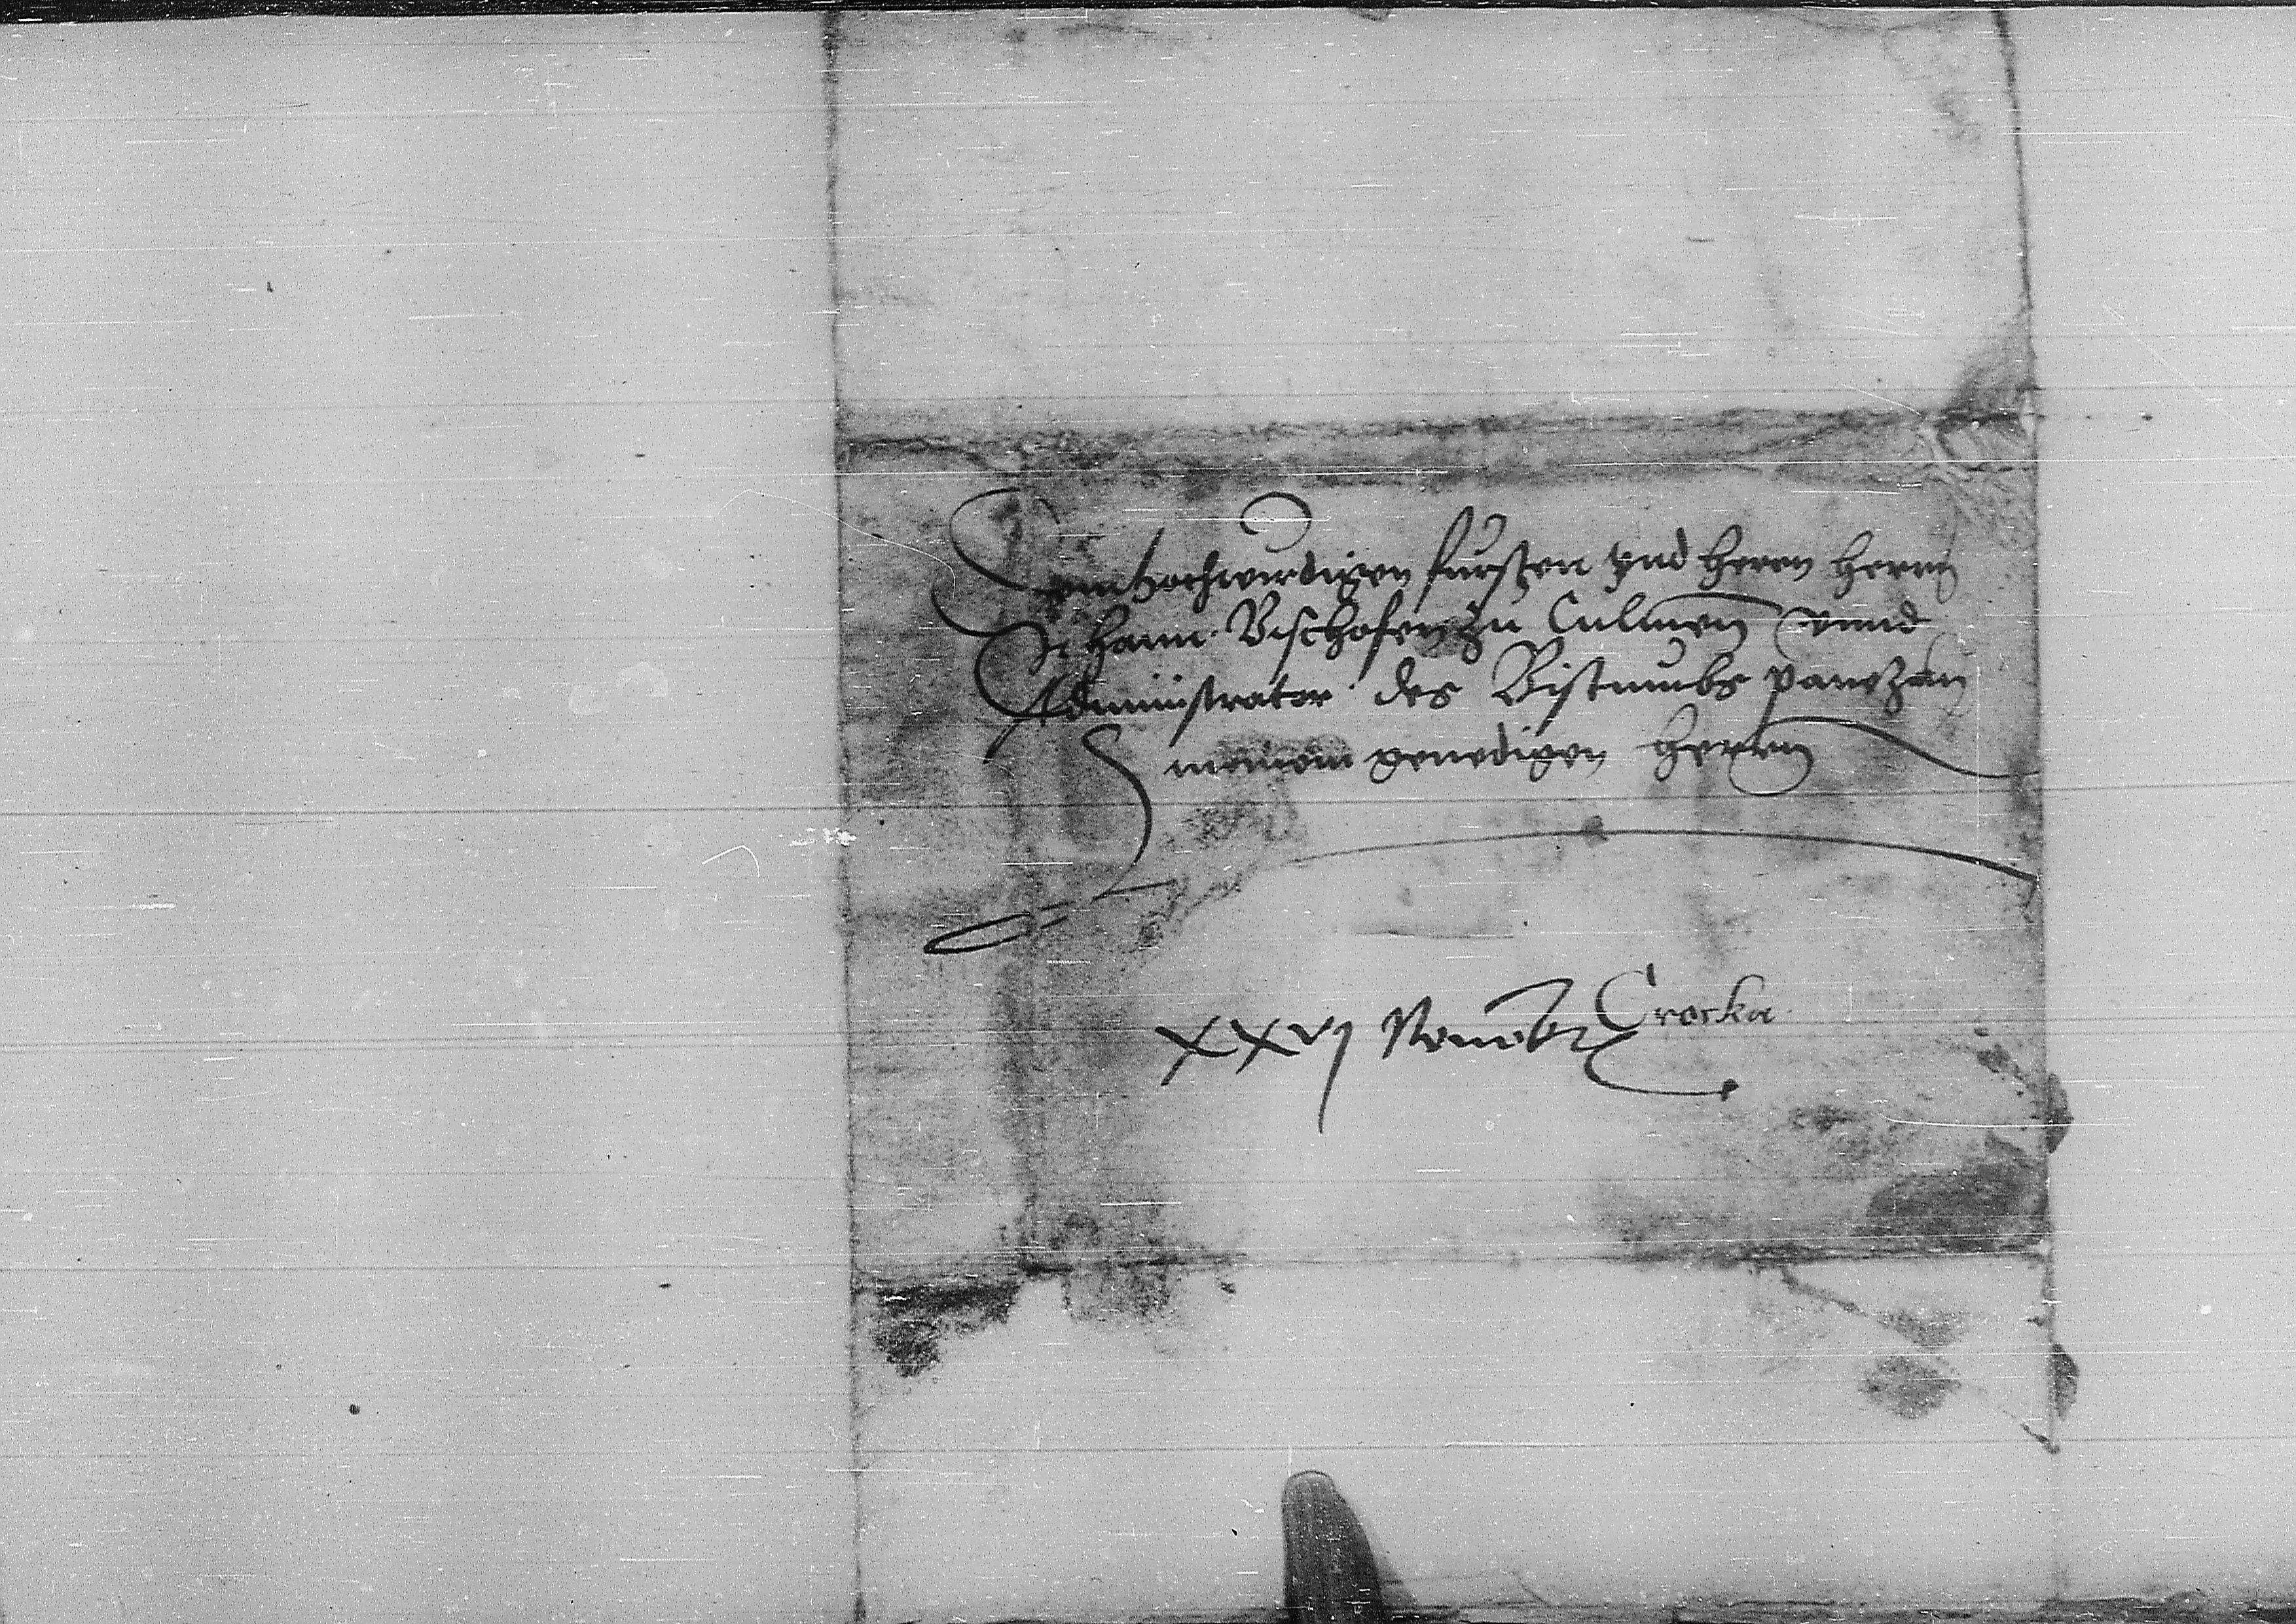 Dem hochwirdigen fursten vnd hern hern
Johann Bischofen zu Culmen vnnd
Administrator des Bistumbs pomezan
meinem genedigen herrn
XXVI Nouēbr Crocka